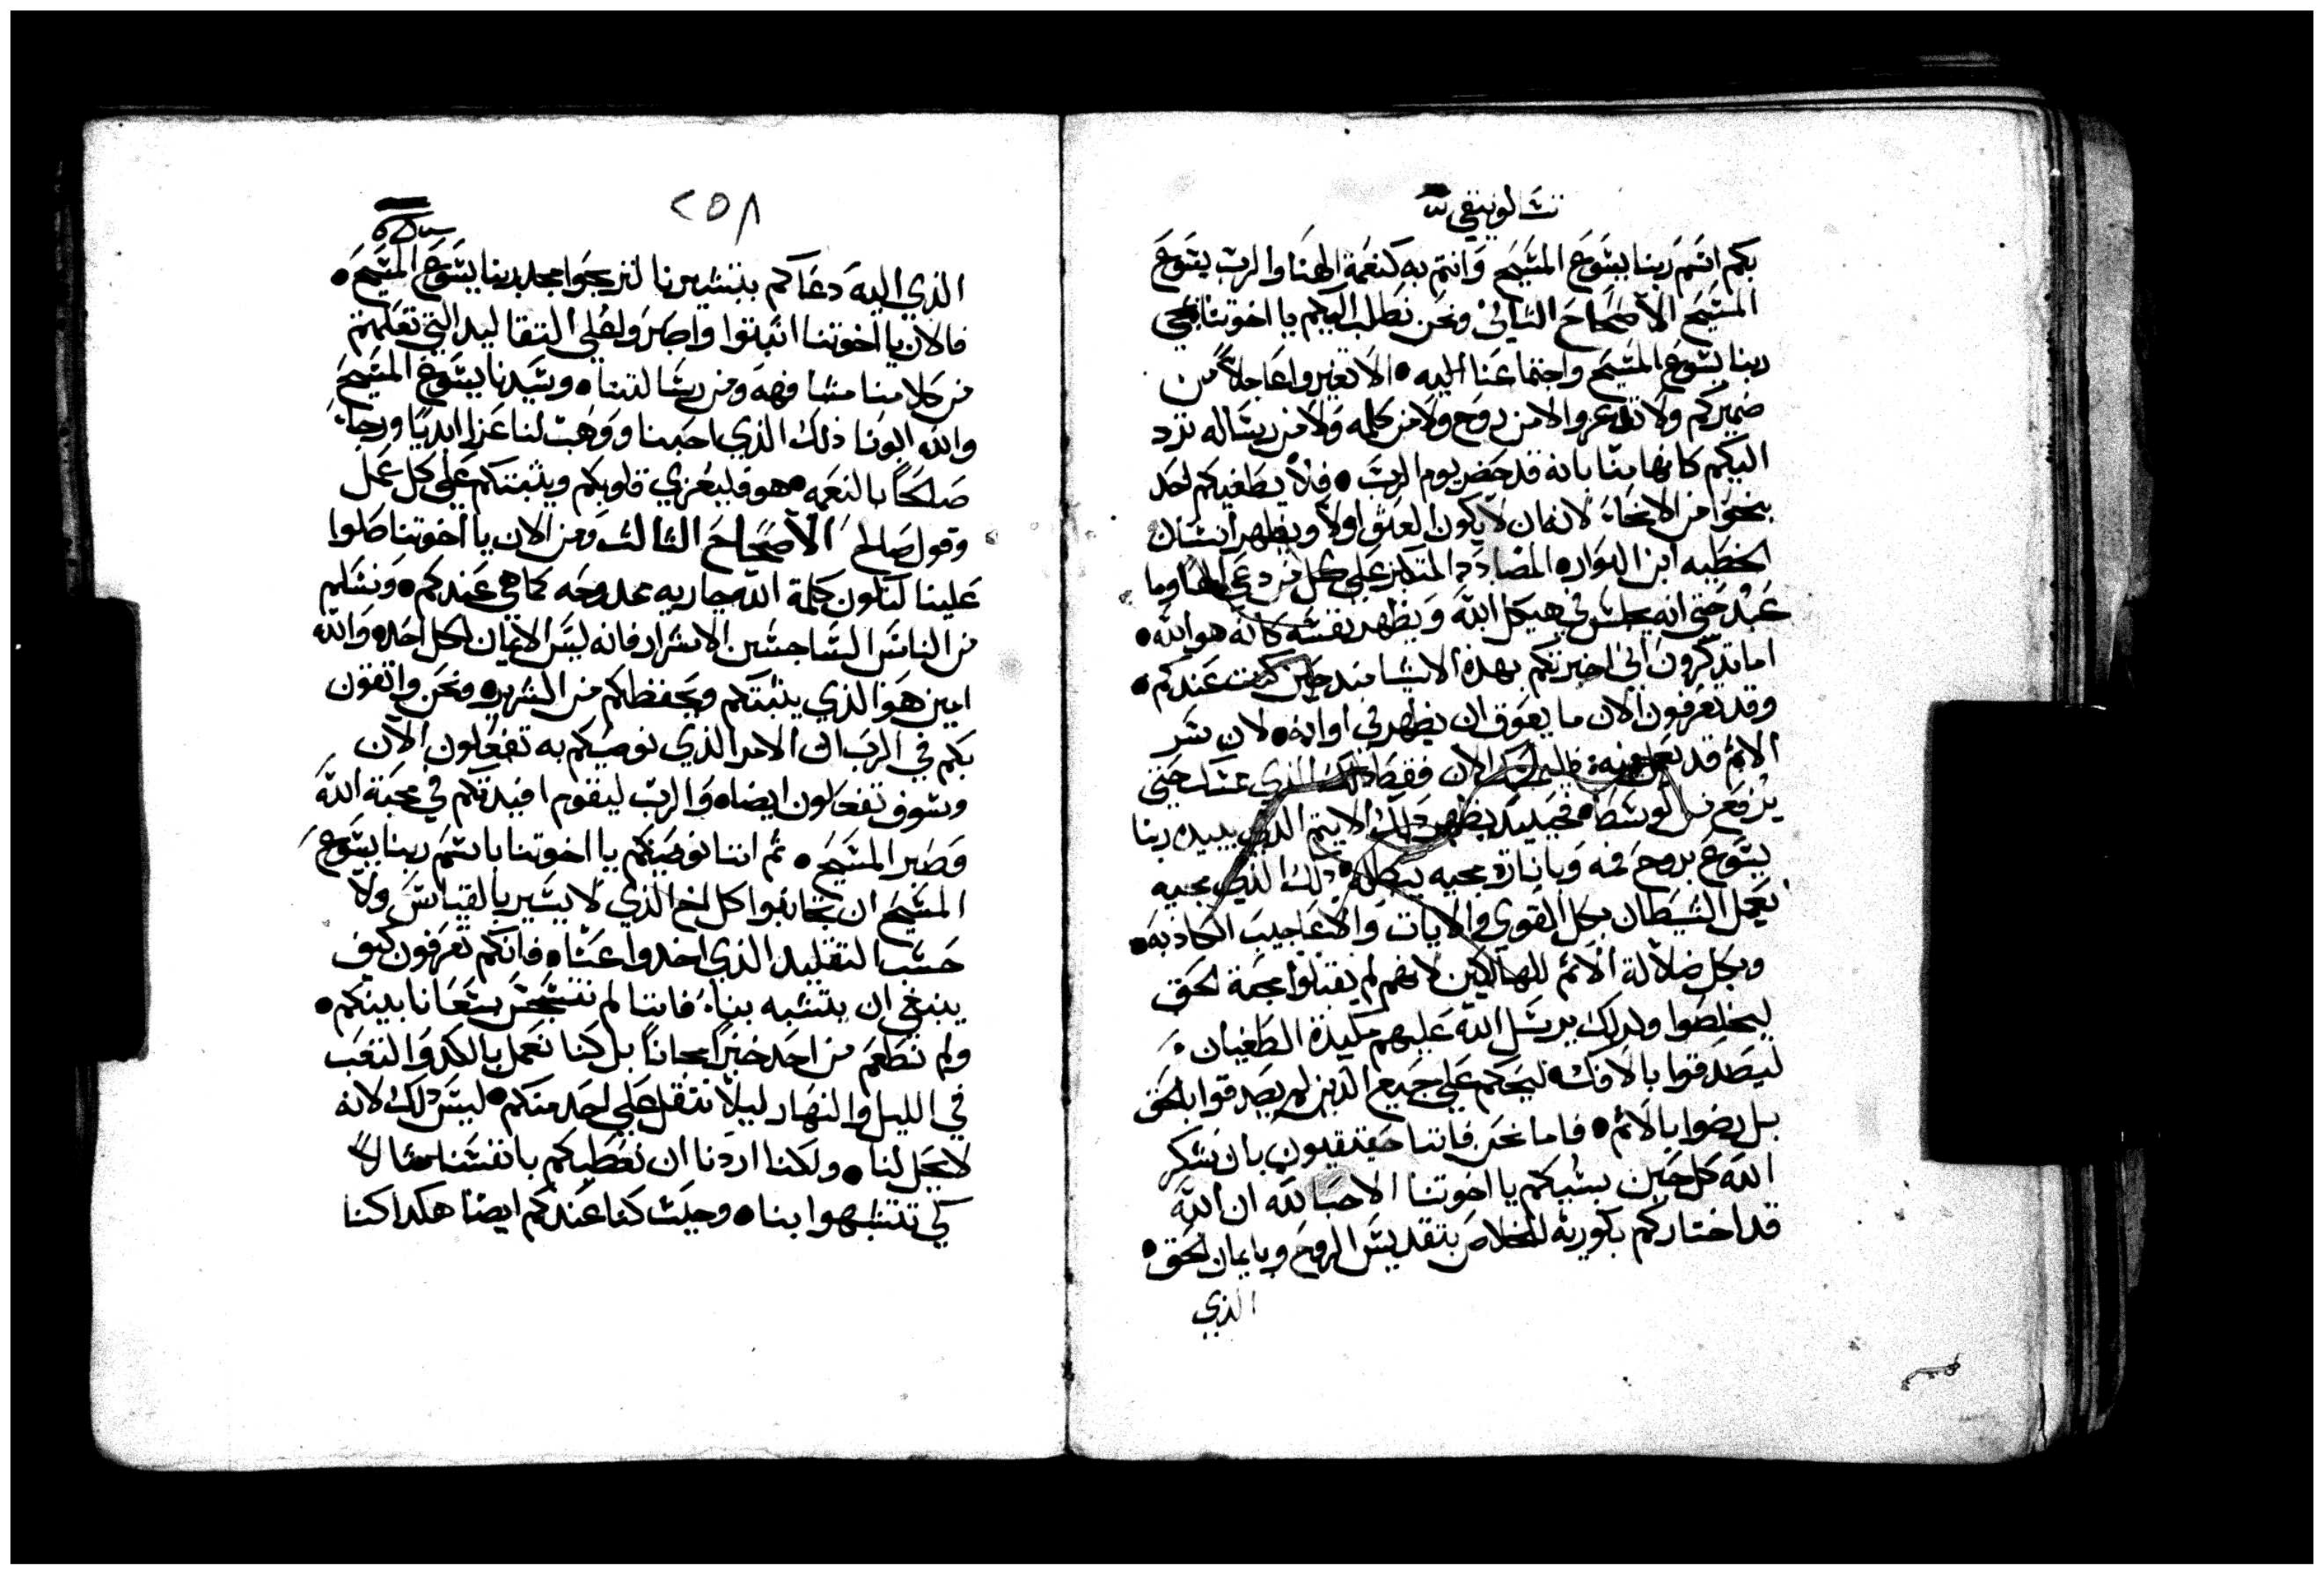 تشالونيقي
بكم انتم ربنا يشوع المشيح وانتم به كنعمة الهنا والرب يشوع
المشيح الاصحاح الثاني ونحن نطلب اليكم يا اخوتنا بمجي
ربنا يشوع المشيح واجتماعنا اليه • الا تغيروا عاجلاً من
ضميركم ولا تدعروا لا من روح ولا من كلمه ولا من رشاله ترد
اليكم كانها منا بانه قد حضر يوم الرب • فلا يطغيكم احد
بنحو من الانحاء لانه ان لا يكون العتق اولا ويظهر انشان
الخطيه ابن البواره المضادد المتكبر على كل من دعي الها وما
عبد حتى انه يجلس في هيكل الله ويظهر نفشه كانه هو الله •
اما تدكرون اني اخبرتكم بهده الاشيا مند حين كنت عندكم •
وقد تعرفون الان ما يعوق ان يظهر في اوانه • لان شر
الاثم قد الان فقط دلك الذي عسك حتى
يرفع من الوشط • فحينيد يظهر دلك الاثيم الذي يبيده ربنا
يشوع بروح فمه وبانارة مجيه يبطله • دلك الذي مجيه
بعمل الشيطان بكل القوي والايات والاعاجيب الكادبه •
وبكل ضلالة الاثم للهالكين لانهم لم يقبلوا محبة الحق
ليخلصوا ولدلك يرشل الله عليهم مكيدة الطغيان •
ليصدقوا بالافك • ليحكم على جميع الدين لم يصدقوا بالحق
بل رضوا بالاثم • فاما نحن فاننا حقيقيون بان نشكر
الله كل حين بشببكم يا اخوتنا الاحبا لله ان الله
قد اختاركم بكوريه للخلاص بتقديش الروح وبايمان الحق •
الذي
٢٥٨
الذي اليه دعاكم بتبشيرنا لتربحوا مجد ربنا يشوع المشيح •
فالان يا اخوتنا اثبتوا واصبروا على التقاليد التي تعلمتم
من كلامنا مشافهه ومن رشالتنا • وشيدنا يشوع المشيح
والله ابونا ذلك الذي احبنا ووهب لنا عزا ابديا ورجاء
صلحا بالنعمه • هو فليعزي قلوبكم ويثبتكم على كل عمل
وقول صالح الاصحاح الثالث ومن الان يا اخوتنا صلوا
علينا لتكون كلمة الله جاريه ممدوحه كما هي عندكم • ونشلم
من الناس الشاجشين الاشرار فانه ليس الايمان لكل احد • والله
امين هو الذي يثبتكم ويحفظكم من الشرير • ونحن واثقون
بكم في الرب ان الامر الذي نوصيكم به تفعلون الان
وشوف تفعلون ايضا • والرب ليقوم افيدتكم في محبة الله
وصبر المشيح • ثم اننا نوصيكم يا اخوتنا باشم ربنا يشوع
المشيح ان تجانبوا كل اخ الذي لا يشير بالقياس ولا
حشب التقليد الذي اخدوا عنا • فانكم تعرفون كيف
ينبغي ان يتشبه بنا • فاننا لم نتشجس شعانا بينكم •
ولم نطعم من احد خبزا مجانا بل كنا نعمل بالكد والتعب
في الليل والنهار ليلا نتقل على احد منكم • ليس دلك لانه
لا يحل لنا • ولكنا اردنا ان نعطيكم بانفشنا مثالا
كي تتشبهوا بنا • وحيث كنا عندكم ايضا هكدا كنا